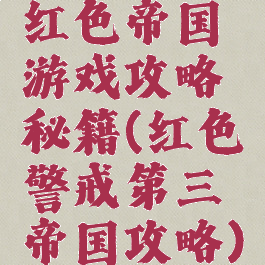 红色帝国
游戏攻略
秘籍(红色
警戒第三
帝国攻略)